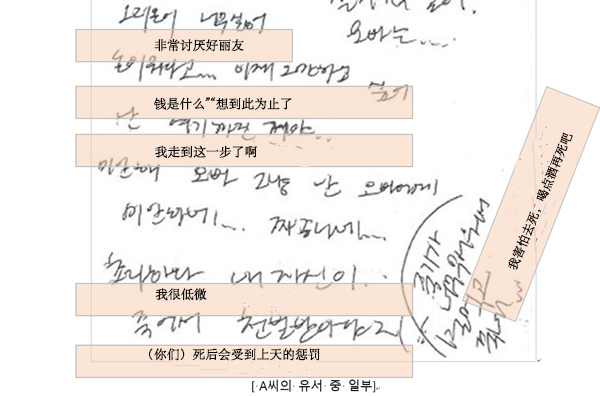 오리온이 너무싫어
오빠는...
非常讨厌好丽友
돈이뭐라고... 이제 그만하고
싶어
钱是什么”“想到此为止了
난 여기까진 거야..
我走到这一步了啊
미안해 오빠 그냥 난 오빠에게
미안하네...
초라하다 내 자신이..
我很低微
죽어서 천벌받아라
（你们）死后会受到上天的惩罚
죽기가
너무 무서워서
我害怕去死，喝点酒再死吧
[A씨의 유서 중 일부]